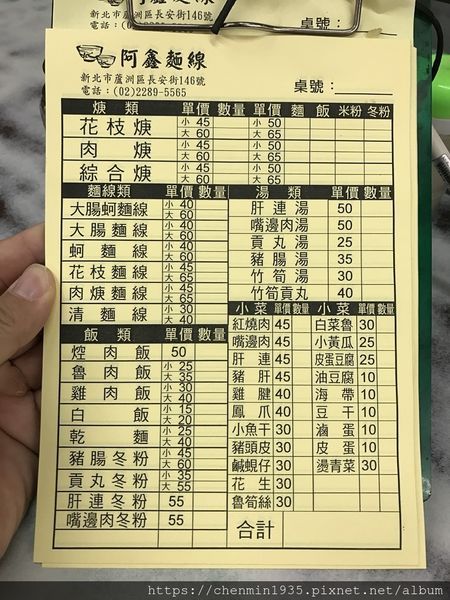 阿鑫麵線
新北市蘆洲區長安街146號
電話：(02)2289-5565
桌號：
焿類 單價 數量 單價 麵 飯 米粉 冬粉
花枝焿 小 45 大 60 小 50 大 65
肉焿 小 45 大 60 小 50 大 65
綜合焿 小 45 大 60 小 50 大 65
麵線類 單價 數量
大腸蚵麵線 小 40 大 60
大腸麵線 小 40 大 60
蚵麵線 小 40 大 60
花枝麵線 小 45 大 65
肉焿麵線 小 45 大 65
清麵線 小 30 大 40
飯類 單價 數量
焢肉飯 50
魯肉飯 小 25 大 35
雞肉飯 小 30 大 40
白飯 小 15 大 20
乾麵 小 25 大 40
豬腸冬粉 小 45 大 60
貢丸冬粉 小 35 大 55
肝連冬粉 55
嘴邊肉冬粉 55
湯類 單價 數量
肝連湯 50
嘴邊肉湯 50
貢丸湯 25
豬腸湯 35
竹筍湯 30
竹筍貢丸 40
小菜 單價 數量 小菜 單價 數量
紅燒肉 45 白菜魯 30
嘴邊肉 45 小黃瓜 25
肝連 45 皮蛋豆腐 25
豬肝 45 油豆腐 10
雞腱 40 海帶 10
鳳爪 40 豆干 10
小魚干 30 滷蛋 10
豬頭皮 30 皮蛋 10
鹹蜆仔 30 燙青菜 30
花生 30
魯筍絲 30
合計
https://chenmin1935.pixnet.net/album